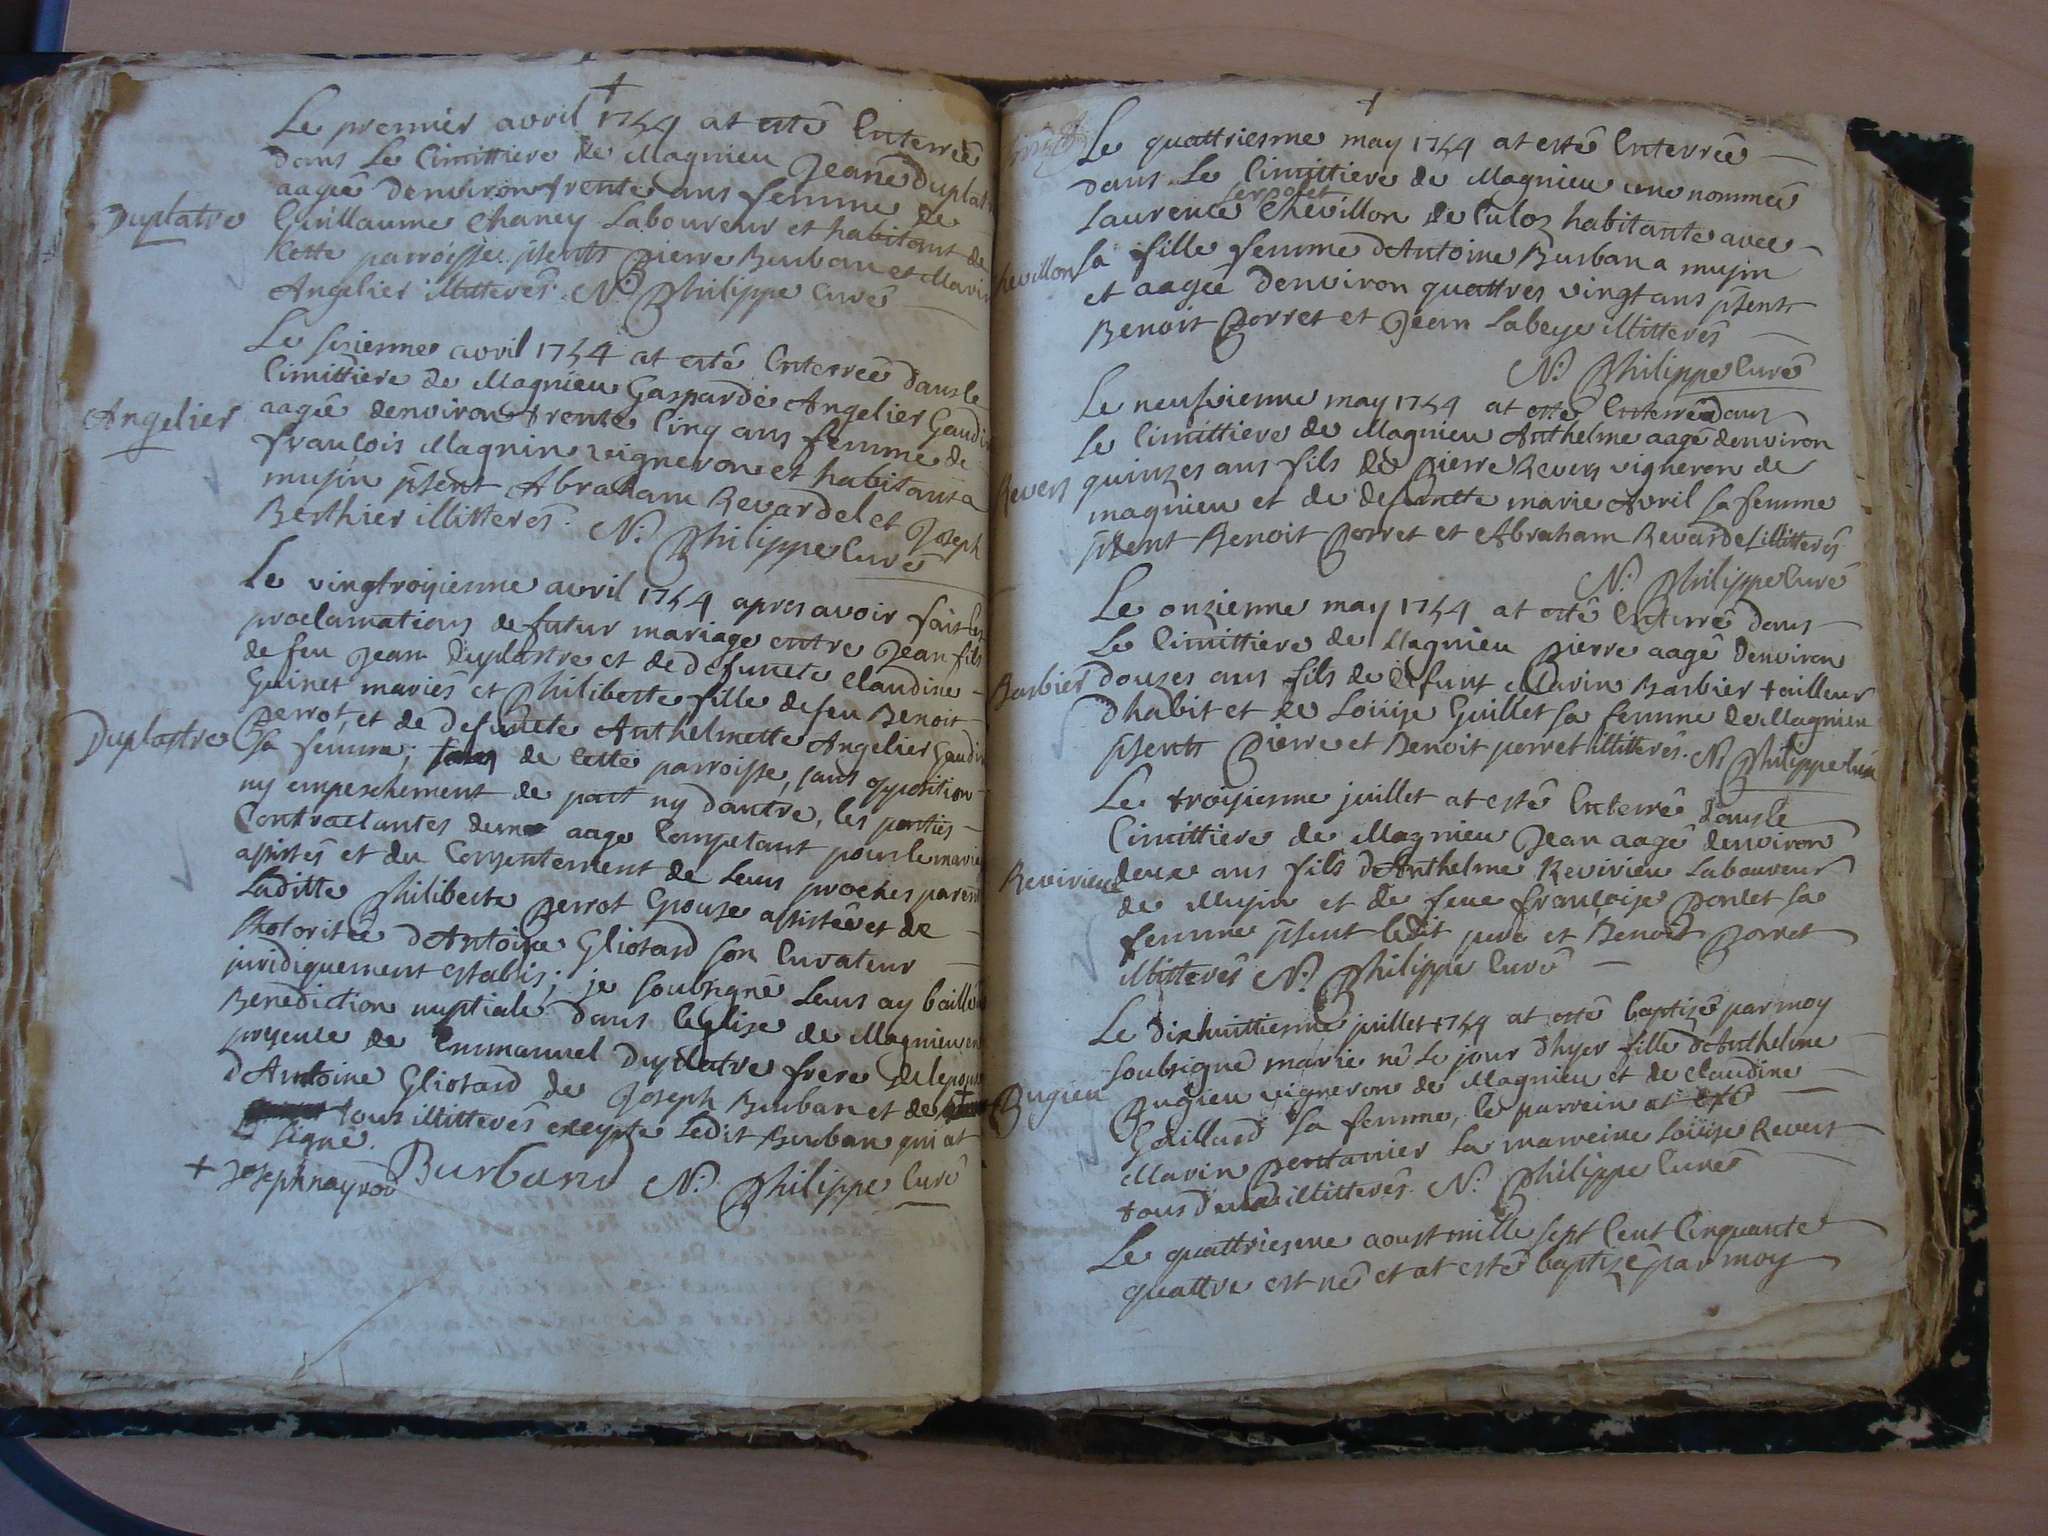 Le premier avril 1754 at esté Enterreé
dans Le Cimittiere de Magnieu Jeane Duplat
aageé denviron trente ans femme de
Duplatre
Guillaume Chaney Laboureur et habitant de
Cette parroisse. pñts pierre Burban et Marin
Angelier illitterés. N. Philippe Curé
Le sixienne avril 1754 at esté Enterreé dans le
Cimittiere de Magnieu Gasparde Angelier Gaudi
Angelier
aageé denviron trente Cinq ans femme de
francois Magnin vigneron et habitant a
musin pñt Abraham Revardel et Joseph
Berthier illitterés. N. Philippe Curé
Le vingtroisienne avril 1754 apres avoir fait les
proclamations de futur mariage entre Jean fils
de feu Jean Duplastre et de defuncte Claudine
Guinet mariés et Philiberte fille de feu Benoit
Perrot et de defuncte Anthelmette Angelier Gaudi
Duplastre
sa femme; de Cette parroisse, sans opposition
ny empeschement de part ny dautre, les parties
Contractantes deme aage Competant pour le maria
assistés et du Consentement de Leurs proches parents
Laditte Philiberte Perrot Epouse assisteé et de
Lhotoriteé dAntoine Gliotard son Curateur
juridiquement establis; je soubsigné Leurs ay baillé
Benediction nuptiale dans leglise de Magnieu en
presence de Emmanuel Duplatre frere de lepoux
dAntoine Gliotard de Joseph Burban et de
tous illitterés excepte Ledit Burban qui at
signé.
+ Joseph nayrod Burband N. Philippe Curé
Le quattriesme may 1754 at esté Enterreé
dans Le Cimittiere de Magnieu une nommeé
Laurence Chevillon de Culoz habitante avec
Chevillon
sa fille femme dAntoine Burban a musin
et aageé denviron quattres vingt ans pñts
Benoit Porret et Jean Labeye illitterés
N. Philippe Curé
Le neufvienne may 1754 at esté Enterré dans
le Cimittiere de Magnieu Anthelme aagé denviron
Revers
quinzes ans fils de Pierre Revers vigneron de
magnieu et de defuncte marie Avril sa femme
pñts Benoit Porret et Abraham Revardel illitterés
N. Philippe Curé
Le onzienne may 1754 at esté Enterré dans
Le Cimittiere de Magnieu Pierre aagé denviron
Barbier
douzes ans fils de defunt Marin Barbier tailleur
dhabit et de Loüise Guillet sa femme de Magnieu
pñts Pierre et Benoit perret illitterés. N. Philippe Curé
Le troisienne juillet at esté Enterré dans le
Cimittiere de Magnieu Jean aagé denviron
Revirieu
deux ans fils dAnthelme Revirieu Laboureur
de Musin et de feue francoise Ponlet sa
femme pñt ledit pere et Benoit Porret
illitterés N. Philippe Curé
Le dixhuittienne juillet 1754 at esté baptisé par moy
soubsigné marie né Le jour dhyer fille dAnthelme
Bugieu
Bugieu vigneron de Magnieu et de Claudine
Gaillard sa femme, le parrein at esté
Marin Pertanier La marreine Loüise Revert
tous deux illitterés. N. Philippe Curés
Le quattriesme aoust mille sept Cent Cinquante
quattre est né et at esté baptizé par moy